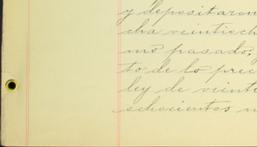 y depositaron
cha veintioch
mo pasado,
to de lo prec
ley de veinte
schocientos n